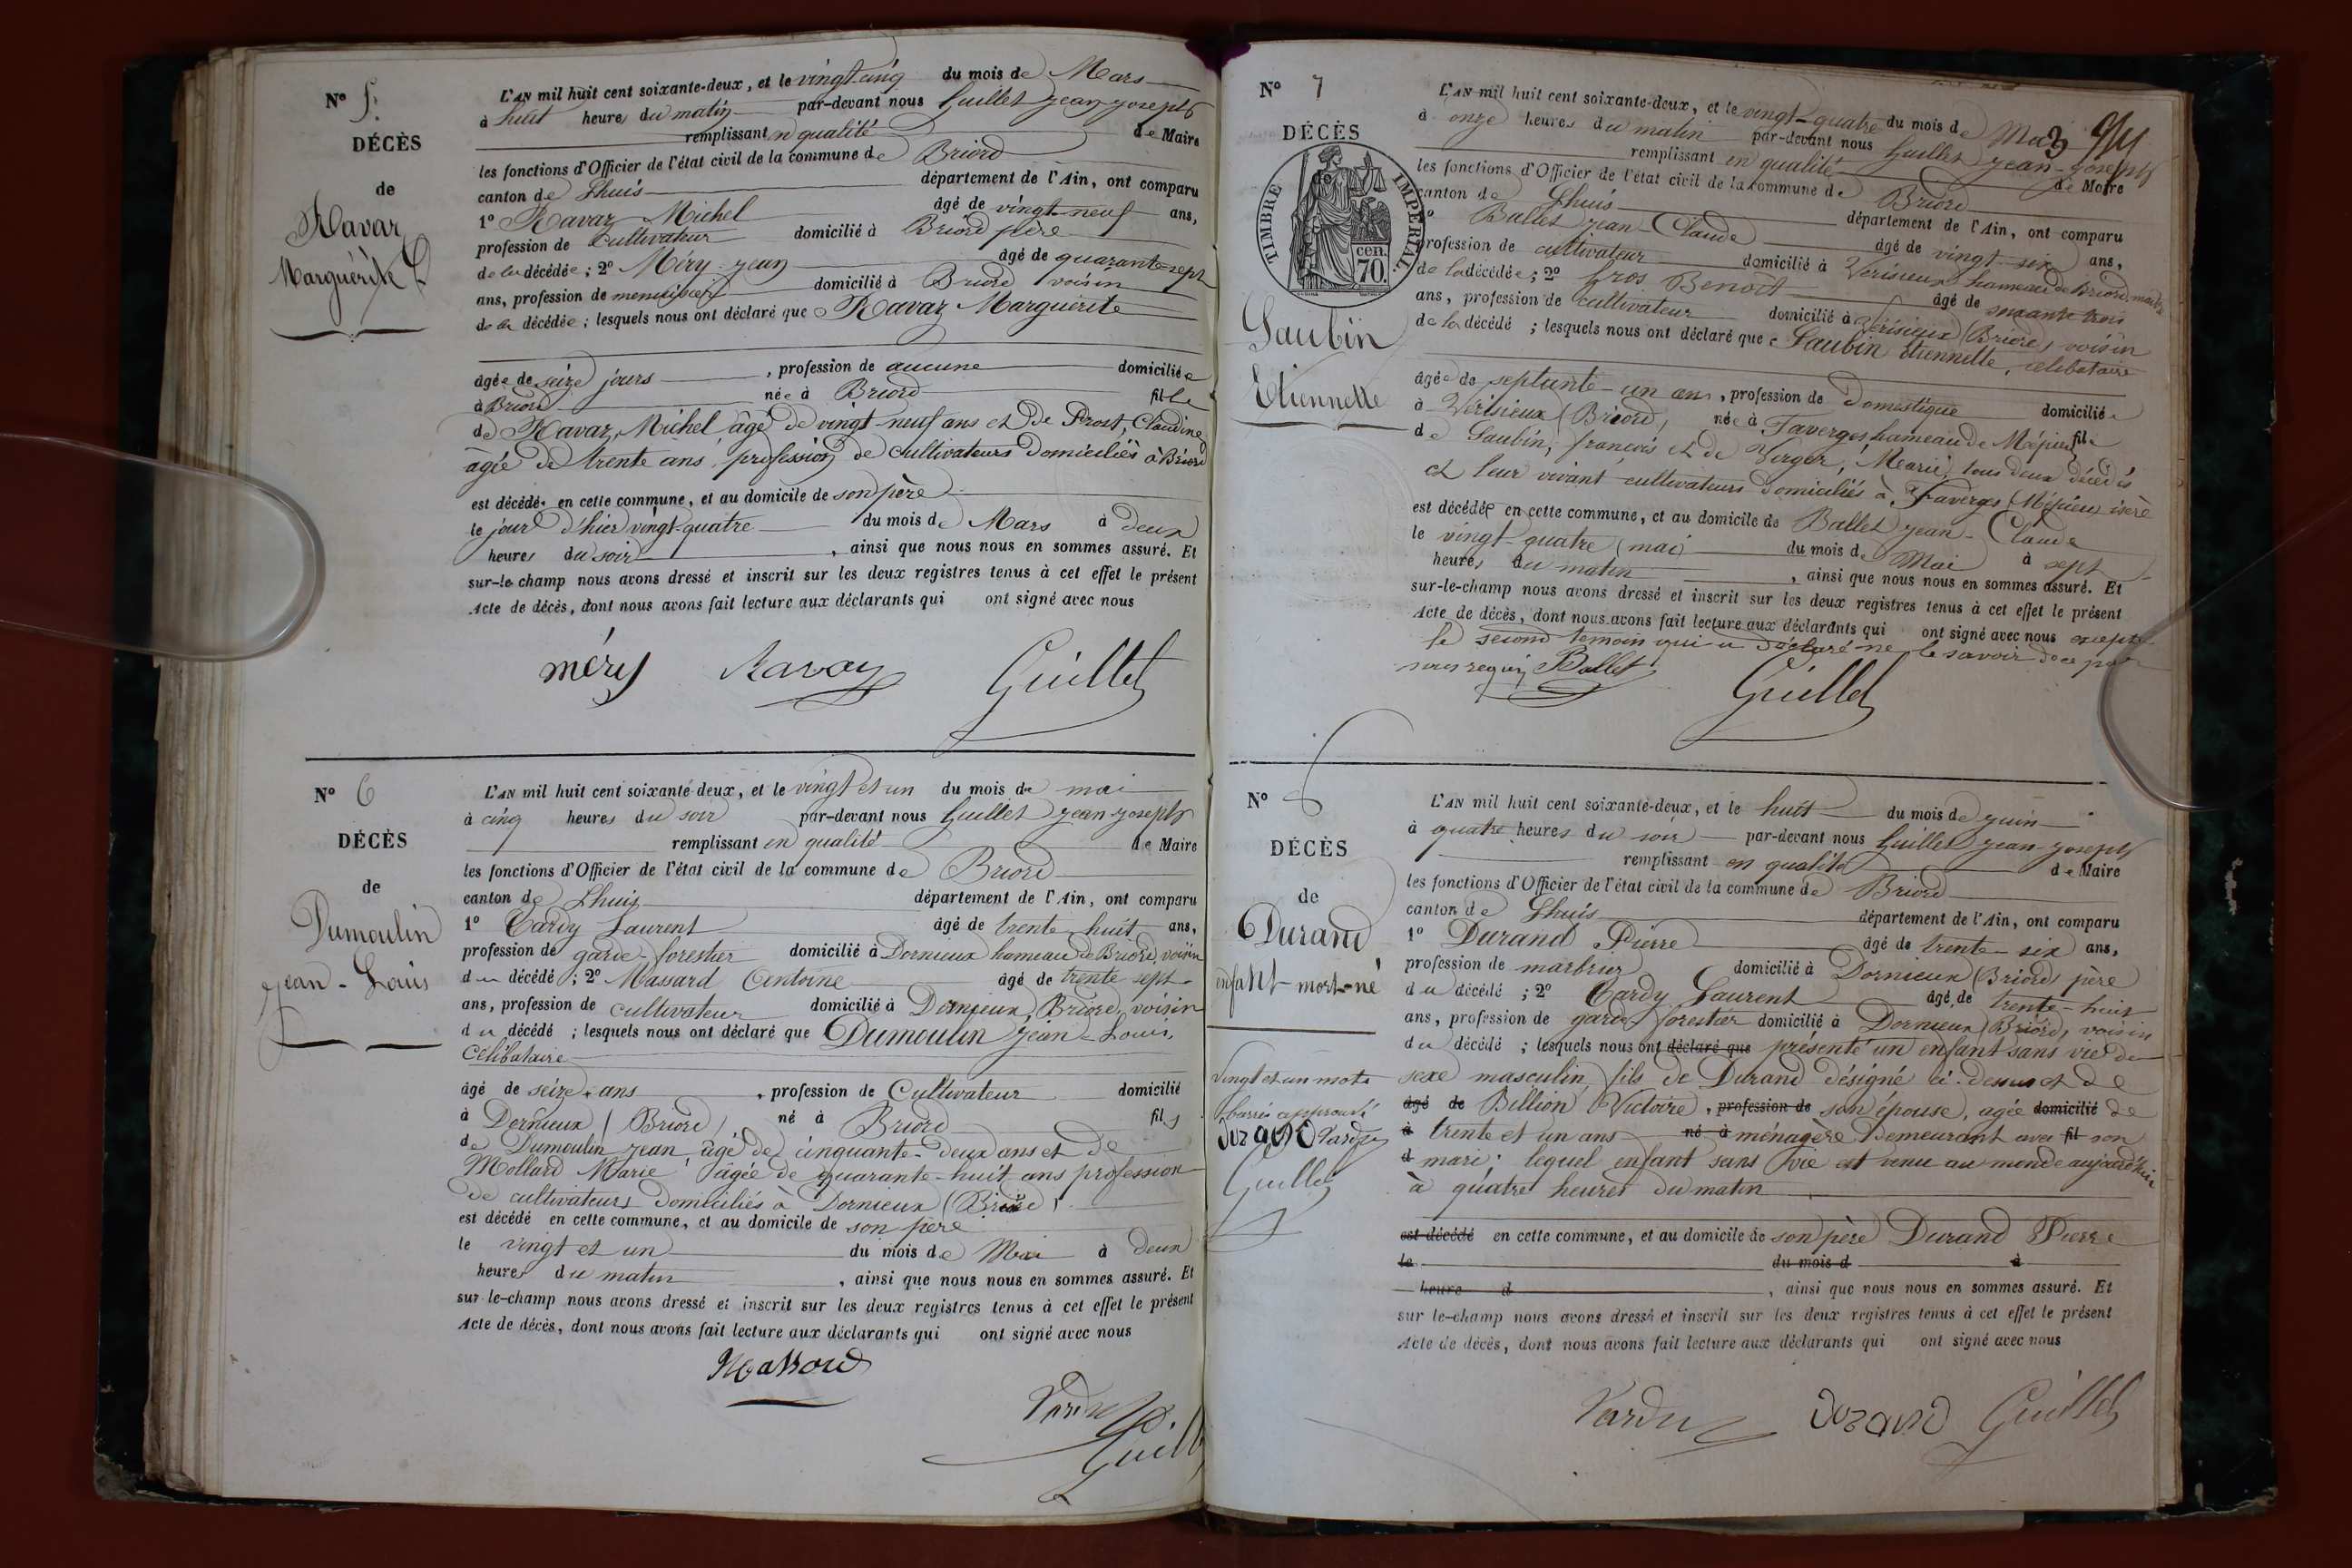 N° 5.
DÉCÈS
de
Ravaz
Marguérite
L'AN mil huit cent soixante-deux, et le vingt-cinq du mois de Mars
à huit heures du matin par-devant nous Guillet jean-joseph
remplissant en qualité de Maire
les fonctions d'Officier de l'état civil de la commune de Briord
canton de Lhuis département de l'Ain, ont comparu
1° Ravaz Michel âgé de vingt-neuf ans,
profession de cultivateur domicilié à Briord père
de la décédée ; 2° Méry jean âgé de quarante-sept
ans, profession de menuisier domicilié à Briord voisin
de la décédée ; lesquels nous ont déclaré que Ravaz Marguérite
âgée de seize jours , profession de aucune domiciliée
à Briord née à Briord fille
de Ravaz Michel âgé de vingt-neuf ans et de Prost, Claudine
âgée de trente ans, profession de cultivateurs domiciliés à Briord
est décédée en cette commune, et au domicile de son père
le jour d'hier vingt-quatre du mois de Mars à deux
heures du soir , ainsi que nous nous en sommes assuré. Et
sur-le-champ nous avons dressé et inscrit sur les deux registres tenus à cet effet le présent
Acte de décès, dont nous avons fait lecture aux déclarants qui ont signé avec nous
méry Ravaz Guillet
N° 6
DÉCÈS
de
Dumoulin
jean-Louis
L'AN mil huit cent soixante-deux, et le vingt et un du mois de mai
à cinq heures du soir par-devant nous Guillet jean-joseph
remplissant en qualité de Maire
les fonctions d'Officier de l'état civil de la commune de Briord
canton de Lhuis département de l'Ain, ont comparu
1° Cardy Laurent âgé de trente-huit ans,
profession de garde-forestier domicilié à Dornieux hameau de Briord, voisin
du décédé ; 2° Massard Antoine âgé de trente-sept
ans, profession de cultivateur domicilié à Dornieux, Briord, voisin
du décédé ; lesquels nous ont déclaré que Dumoulin jean-Louis,
célibataire
âgé de seize ans , profession de Cultivateur domicilié
à Dornieux (Briord) né à Briord fils
de Dumoulin jean âgé de cinquante-deux ans et de
Mollard Marie âgée de quarante-huit ans profession
de cultivateurs domiciliés à Dornieux (Briord)
est décédé en cette commune, et au domicile de son père
le vingt et un du mois de Mai à deux
heures du matin , ainsi que nous nous en sommes assuré. Et
sur-le-champ nous avons dressé et inscrit sur les deux registres tenus à cet effet le présent
Acte de décès, dont nous avons fait lecture aux déclarants qui ont signé avec nous
Massard
Guillet
N° 7
DÉCÈS
TIMBRE IMPÉRIAL
cen.
70.
Gaubin
Etiennette
L'AN mil huit cent soixante-deux, et le vingt-quatre du mois de Mai
à onze heures du matin par-devant nous Guillet jean-joseph
remplissant en qualité de Maire
les fonctions d'Officier de l'état civil de la commune de Briord
canton de Lhuis département de l'Ain, ont comparu
1° Ballet jean-Claude âgé de vingt-six ans,
profession de cultivateur domicilié à Verisieux hameau de Briord,
de la décédée ; 2° Gros Benoit âgé de soixante trois
ans, profession de cultivateur domicilié à Verisieux (Briord) voisin
de la décédé ; lesquels nous ont déclaré que Gaubin Etiennette, célibataire
âgée de septante-un ans, profession de Domestique domiciliée
à Verisieux (Briord) née à Faverges hameau de Mépieu fille
de Gaubin, françois et de Verger, Marie, tous deux décédés
et leur vivant cultivateurs domiciliés à Faverges (Mépieu) isère
est décédée en cette commune, et au domicile de Ballet jean-Claude
le vingt-quatre (mai) du mois de Mai à sept
heures du matin , ainsi que nous nous en sommes assuré. Et
sur-le-champ nous avons dressé et inscrit sur les deux registres tenus à cet effet le présent
Acte de décès, dont nous avons fait lecture aux déclarants qui ont signé avec nous excepté
le second temoin qui a déclaré ne le savoir de ce par
nous requis Ballet
Guillet
N° 8
DÉCÈS
de
Durand
enfant mort-né
vingt et un mots
barrés approuvé
Durand
Guillet
L'AN mil huit cent soixante-deux, et le huit du mois de juin
à quatre heures du soir par-devant nous Guillet jean-joseph
remplissant en qualité de Maire
les fonctions d'Officier de l'état civil de la commune de Briord
canton de Lhuis département de l'Ain, ont comparu
1° Durand Pierre âgé de trente-six ans,
profession de marbrier domicilié à Dornieux (Briord) père
du décédé ; 2° Cardy Laurent âgé de trente-huit
ans, profession de garde forestier domicilié à Dornieux (Briord) voisin
du décédé ; lesquels nous ont déclaré que présenté un enfant sans vie du
sexe masculin, fils de Durand désigné ci-dessus et de
âgé de Billion Victoire, profession de son épouse, agée domicilié de
à trente et un ans né à ménagère demeurant avec fil son
d mari; lequel enfant sans vie est venu au monde aujourd'hui
à quatre heures du matin
est décédé en cette commune, et au domicile de son père Durand Pierre
le du mois d à
heure d , ainsi que nous nous en sommes assuré. Et
sur-le-champ nous avons dressé et inscrit sur les deux registres tenus à cet effet le présent
Acte de décès, dont nous avons fait lecture aux déclarants qui ont signé avec nous
Durand Guillet